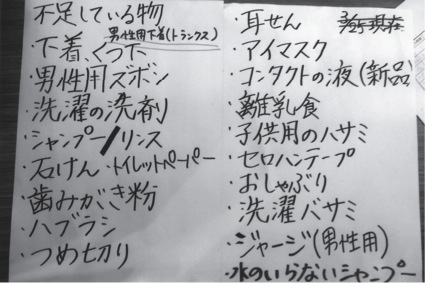 不足している物
男性用下着(トランクス)
・下着、くつ下
・男性用ズボン
・洗濯の洗剤
・シャンプー/リンス
・石けん ・トイレットペーパー
・歯みがき粉
・ハブラシ
・つめ切り
3/25現在
・耳せん
・アイマスク
・コンタクトの液(新品)
・離乳食
・子供用のハサミ
・セロハンテープ
・おしゃぶり
・洗濯バサミ
・ジャージ(男性用)
・水のいらないシャンプー